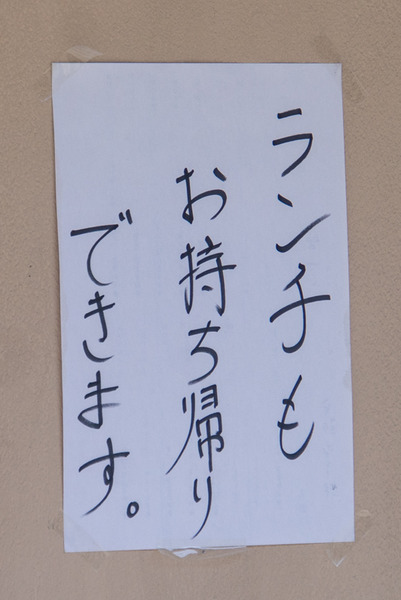 ランチも
お持ち帰り
できます。